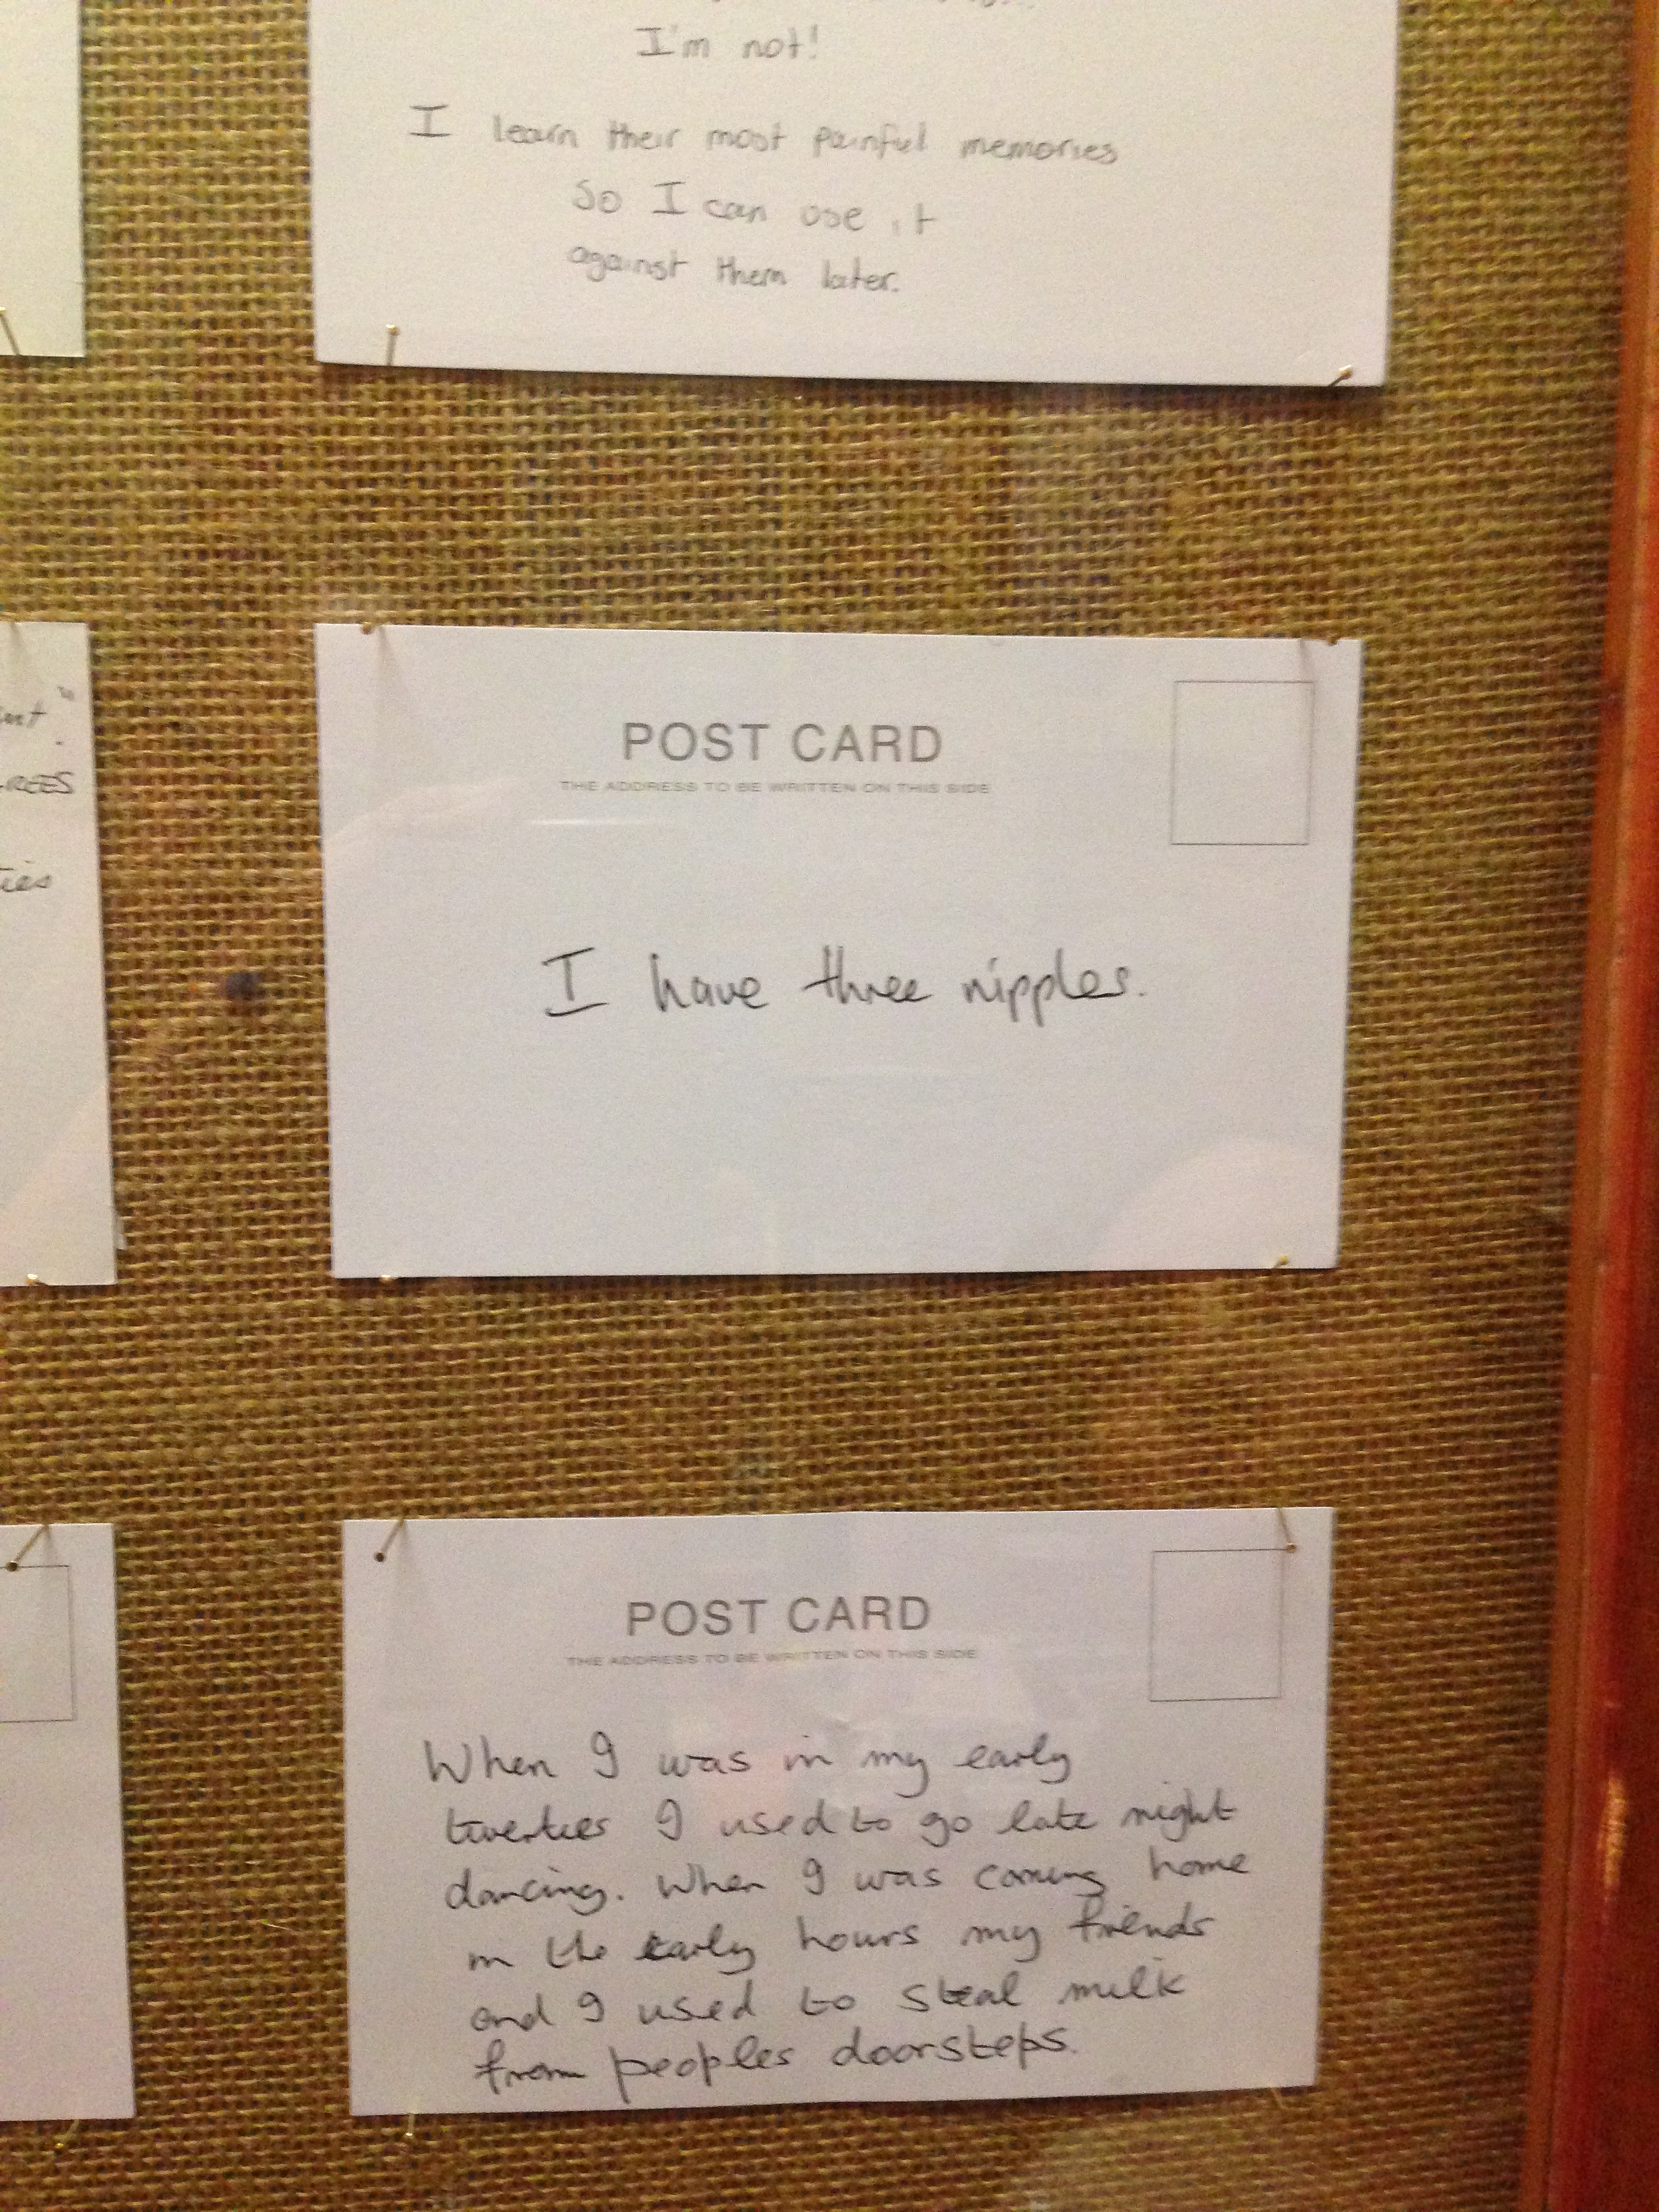 I'm not!
I learn their most painful memories
So I can use it
against them later.
POST CARD
THE ADDRESS TO BE WRITTEN ON THIS SIDE
I have three nipples.
REES
ies
POST CARD
THE ADDRESS TO BE WRITTEN ON THIS SIDE
When I was in my early
twenties I used to go late night
dancing. When I was coming home
in the early hours my friends
and I used to steal milk
from peoples doorsteps.